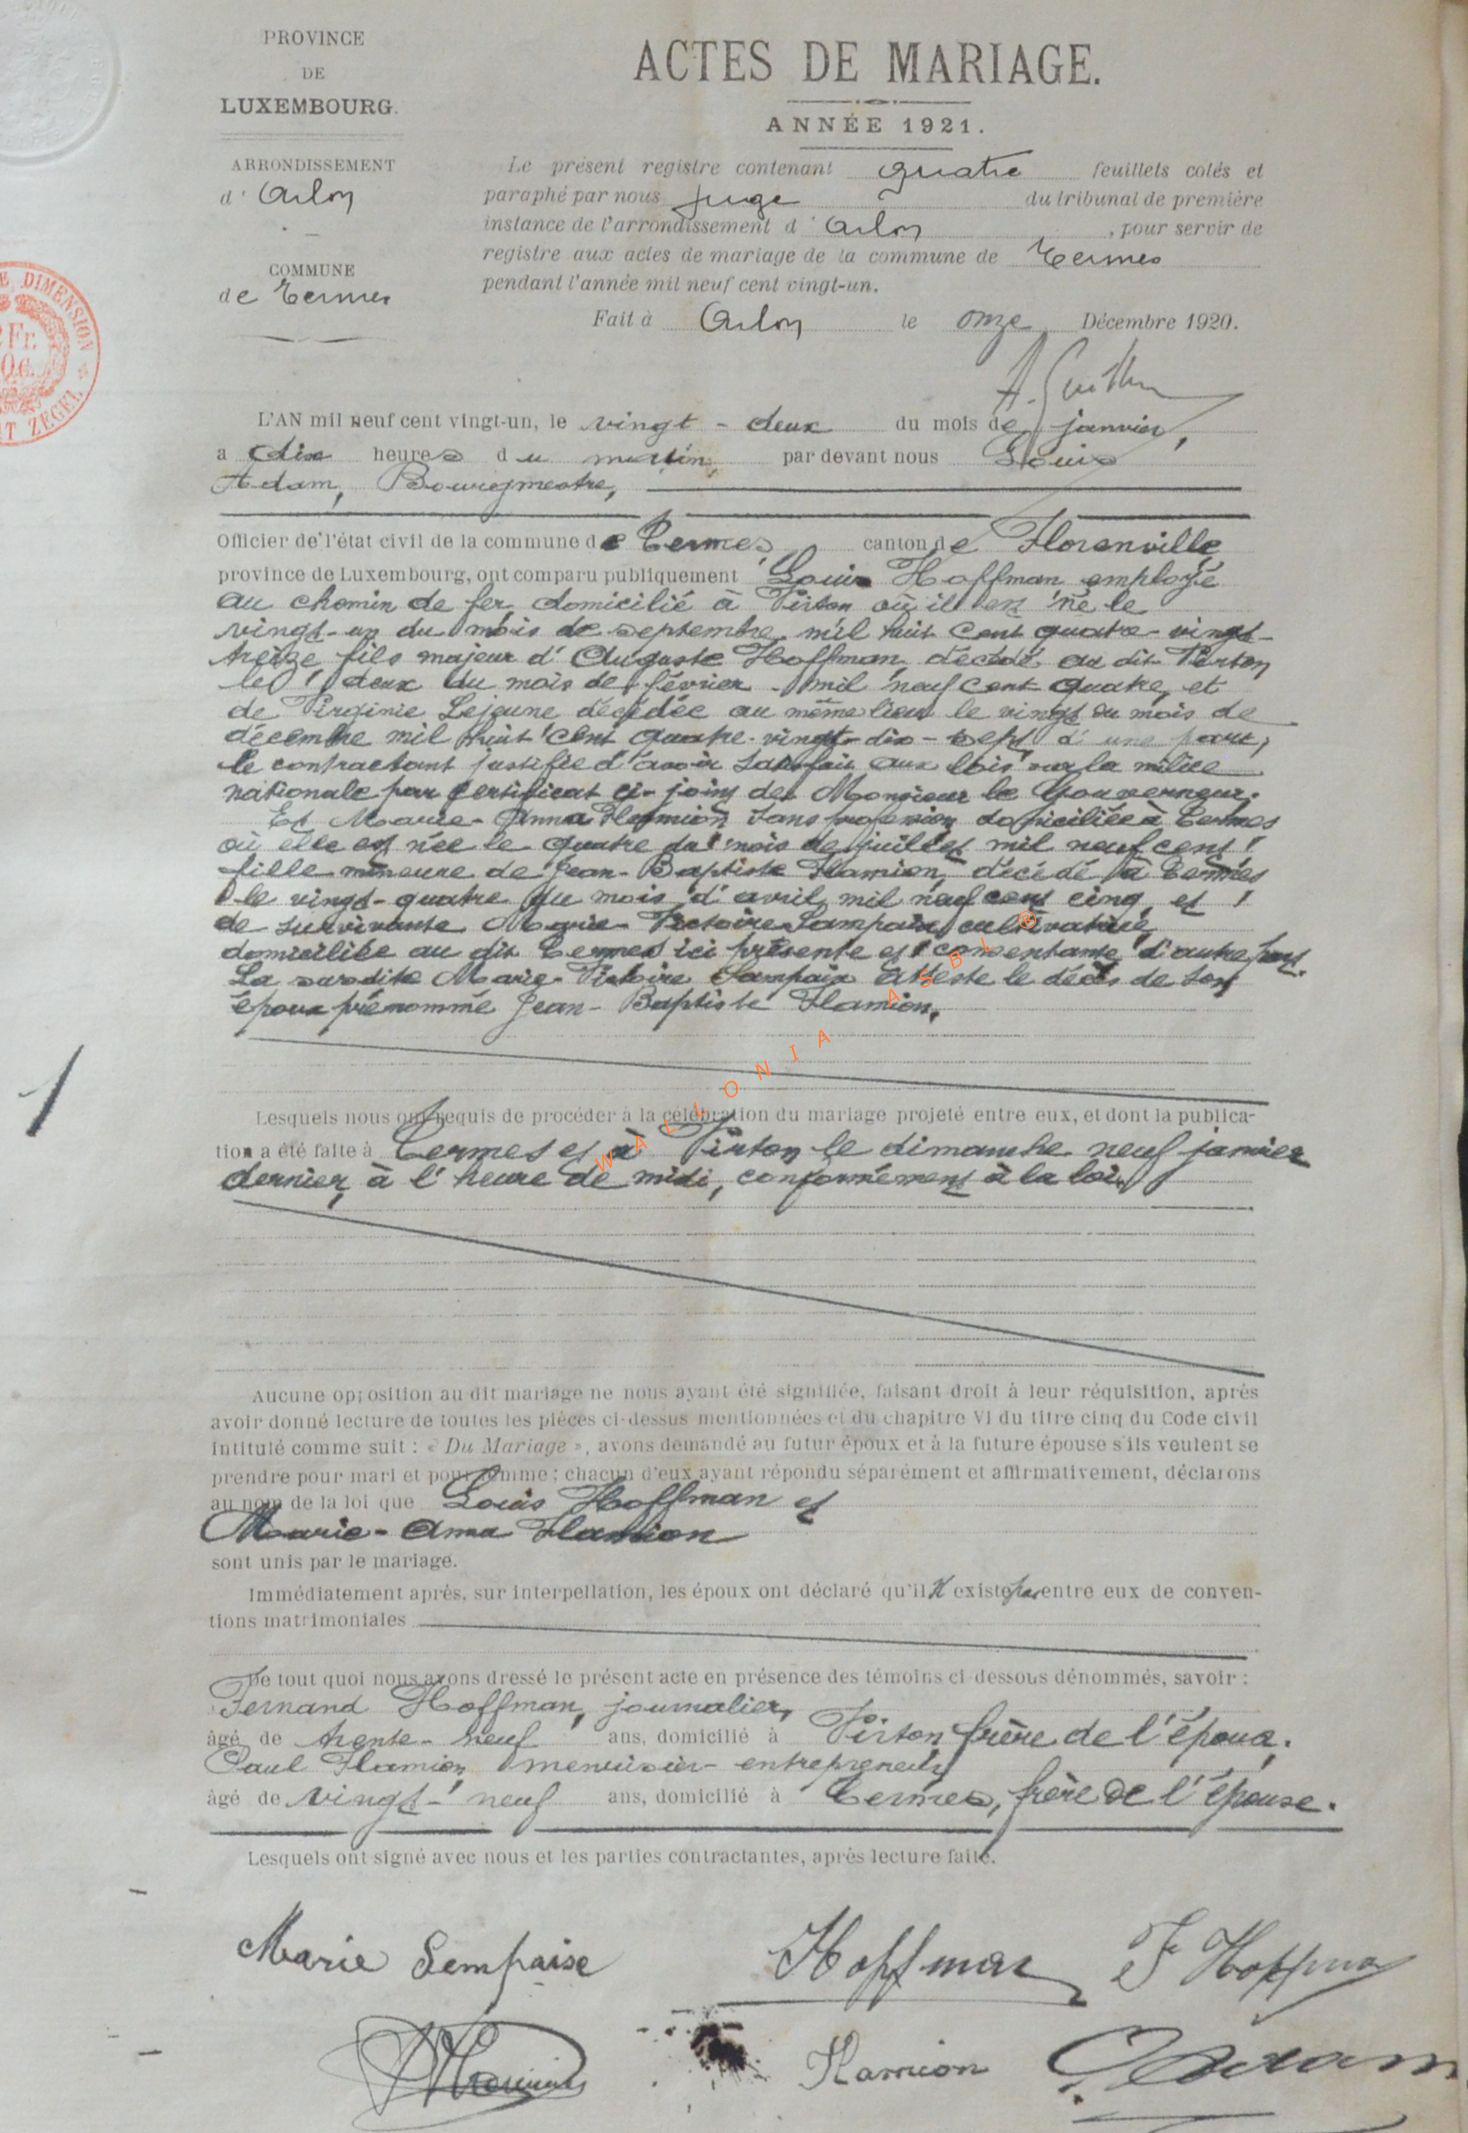 PROVINCE
DE
LUXEMBOURG.
ARRONDISSEMENT
d' Arlon
COMMUNE
de Termes
E DIMENSION
Fr.
0c.
T ZEGEL
ACTES DE MARIAGE.
ANNÉE 1921.
Le présent registre contenant quatre feuillets cotés et
paraphé par nous juge du tribunal de première
instance de l'arrondissement d'Arlon, pour servir de
registre aux actes de mariage de la commune de Termes
pendant l'année mil neuf cent vingt-un.
Fait à Arlon le onze Décembre 1920.
L'AN mil neuf cent vingt-un, le vingt-deux du mois de janvier,
a dix heures du matin, par devant nous Louis
Adam, Bourgmestre,
Officier de l'état civil de la commune de Termes canton de Florenville
province de Luxembourg, ont comparu publiquement Louis Hoffman employé
au chemin de fer, domicilié à Virton où il est né le
vingt-un du mois de septembre mil huit cent quatre-vingt-
treize fils majeur d'Auguste Hoffman, décédé au dit Virton
le deux du mois de février mil neuf cent quatre, et
de Virginie Lejeune décédée au même lieu le vingt du mois de
décembre mil huit cent quatre-vingt-dix-sept d'une part,
le contractant justifie d'avoir satisfait aux lois sur la milice
nationale par certificat ci-joint de Monsieur le Gouverneur.
Et Marie-Anna Flamion sans profession domiciliée à Termes
où elle est née le quatre du mois de juillet mil neuf cent
fille mineure de Jean-Baptiste Flamion, décédé à Termes
le vingt-quatre du mois d'avril mil neuf cent cinq, et
de survivante Marie-Victoire Sampaix cultivatrice
domiciliée au dit Termes ici présente et consentante d'autre part.
La susdite Marie-Victoire Sampaix atteste le décès de son
époux prénommé Jean-Baptiste Flamion.
WALLONIA ASBL ®
1
Lesquels nous ont requis de procéder à la célébration du mariage projeté entre eux, et dont la publica-
tion a été faite à Termes et à Virton le dimanche neuf janvier
dernier, à l'heure de midi, conformément à la loi.
Aucune opposition au dit mariage ne nous ayant été signifiée, faisant droit à leur réquisition, après
avoir donné lecture de toutes les pièces ci-dessus mentionnées et du chapitre VI du titre cinq du Code civil
intitulé comme suit : « Du Mariage », avons demandé au futur époux et à la future épouse s'ils veulent se
prendre pour mari et pour femme ; chacun d'eux ayant répondu séparément et affirmativement, déclarons
au nom de la loi que Louis Hoffman et
Marie-Anna Flamion
sont unis par le mariage.
Immédiatement après, sur interpellation, les époux ont déclaré qu'il n'existe pas entre eux de conven-
tions matrimoniales
De tout quoi nous avons dressé le présent acte en présence des témoins ci-dessous dénommés, savoir :
Fernand Hoffman, journalier,
âgé de trente-neuf ans, domicilié à Virton, frère de l'époux.
Paul Flamion, menuisier-entrepreneur
âgé de vingt-neuf ans, domicilié à Termes, frère de l'épouse.
Lesquels ont signé avec nous et les parties contractantes, après lecture faite.
Marie Sempaise Hoffman F Hoffman
Flamion Adam